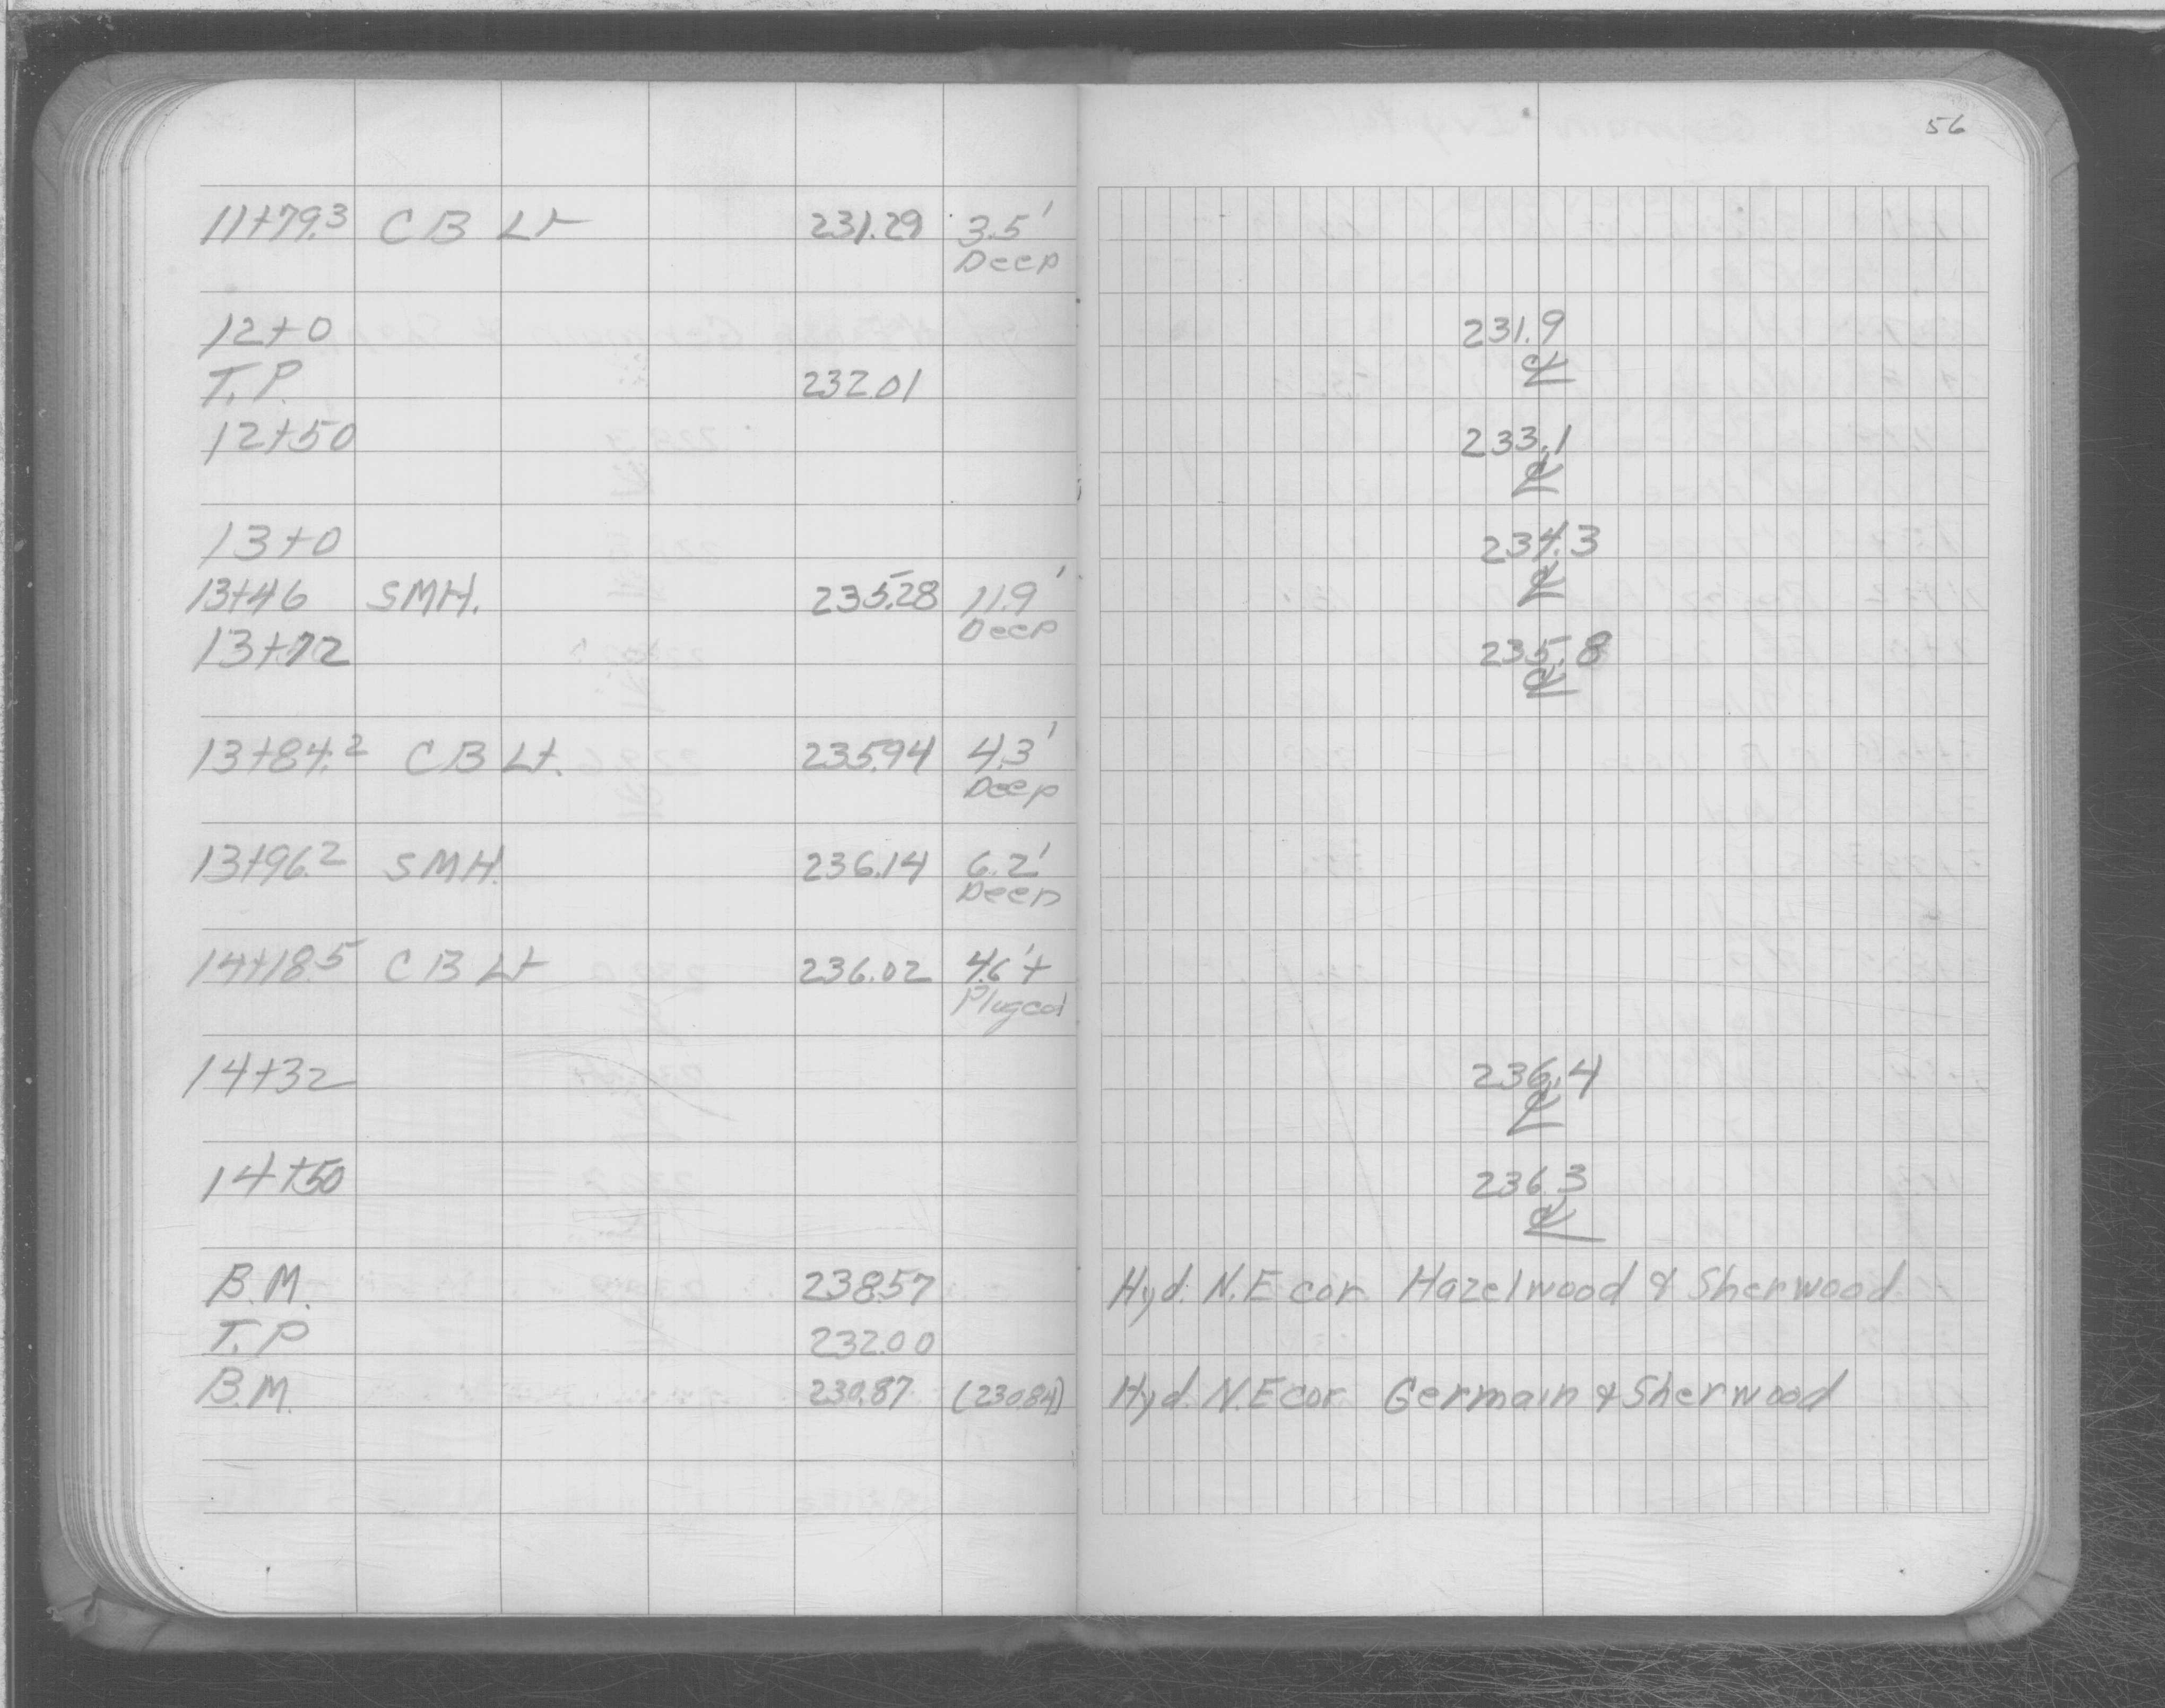 56
11+79.3 CB Lt 231.29 3.5'
Deep
12+0 231.9
℄
T.P. 232.01
12+50 233.1
℄
13+0 234.3
℄
13+46 SMH. 235.28 11.9'
Deep
13+72 235.8
℄
13+84.2 CB Lt. 235.94 4.3'
Deep
13+96.2 SMH. 236.14 6.2'
Deep
14+18.5 CB Lt 236.02 4.6'+
Plugged
14+32 236.4
℄
14+50 236.3
℄
B.M. 238.57 Hyd. N.E cor. Hazelwood & Sherwood
T.P. 232.00
B.M. 230.87 (230.84) Hyd. N.E cor Germain & Sherwood